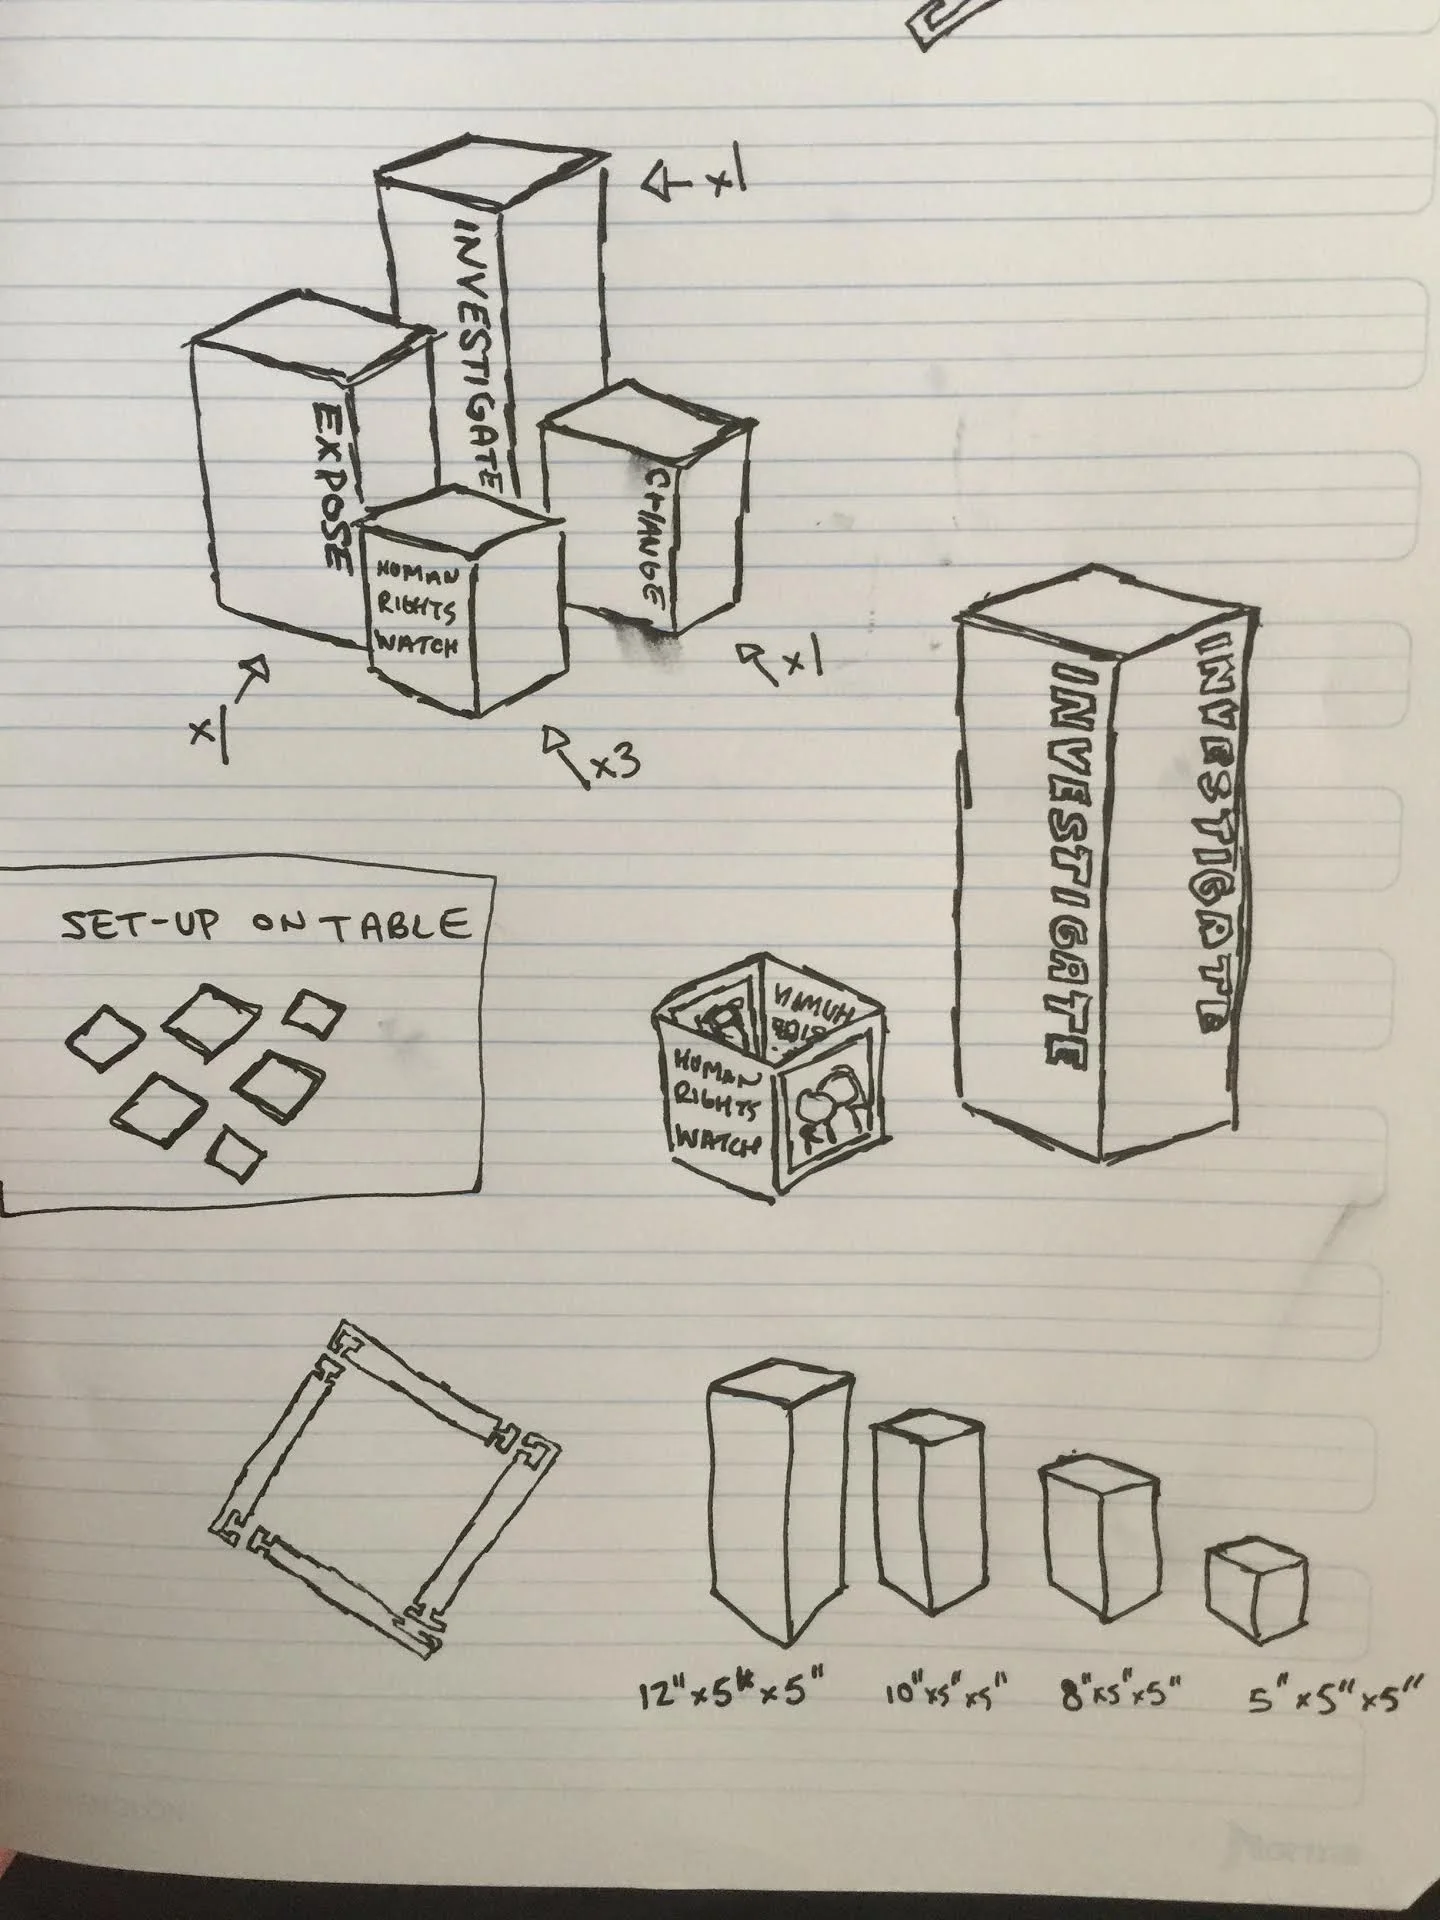 x1
INVESTIGATE
EXPOSE
CHANGE
HUMAN
RIGHTS
WATCH
x1
x1
x3
INVESTIGATE
INVESTIGATE
SET-UP ON TABLE
HUMAN
HUMAN
RIGHTS
WATCH
12"x5"x5"
10"x5"x5"
8"x5"x5"
5"x5"x5"
Norma